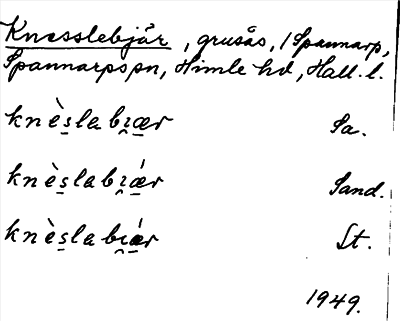 Knesslebjär, grusås, i Spannarp,
Spannarps sn, Himle hd, Hall. l.
knèslabɪ̯ær Sa.
knèslabɪ̯ǽr Sand.
knèslabɪ̯ǽr St.
1949.